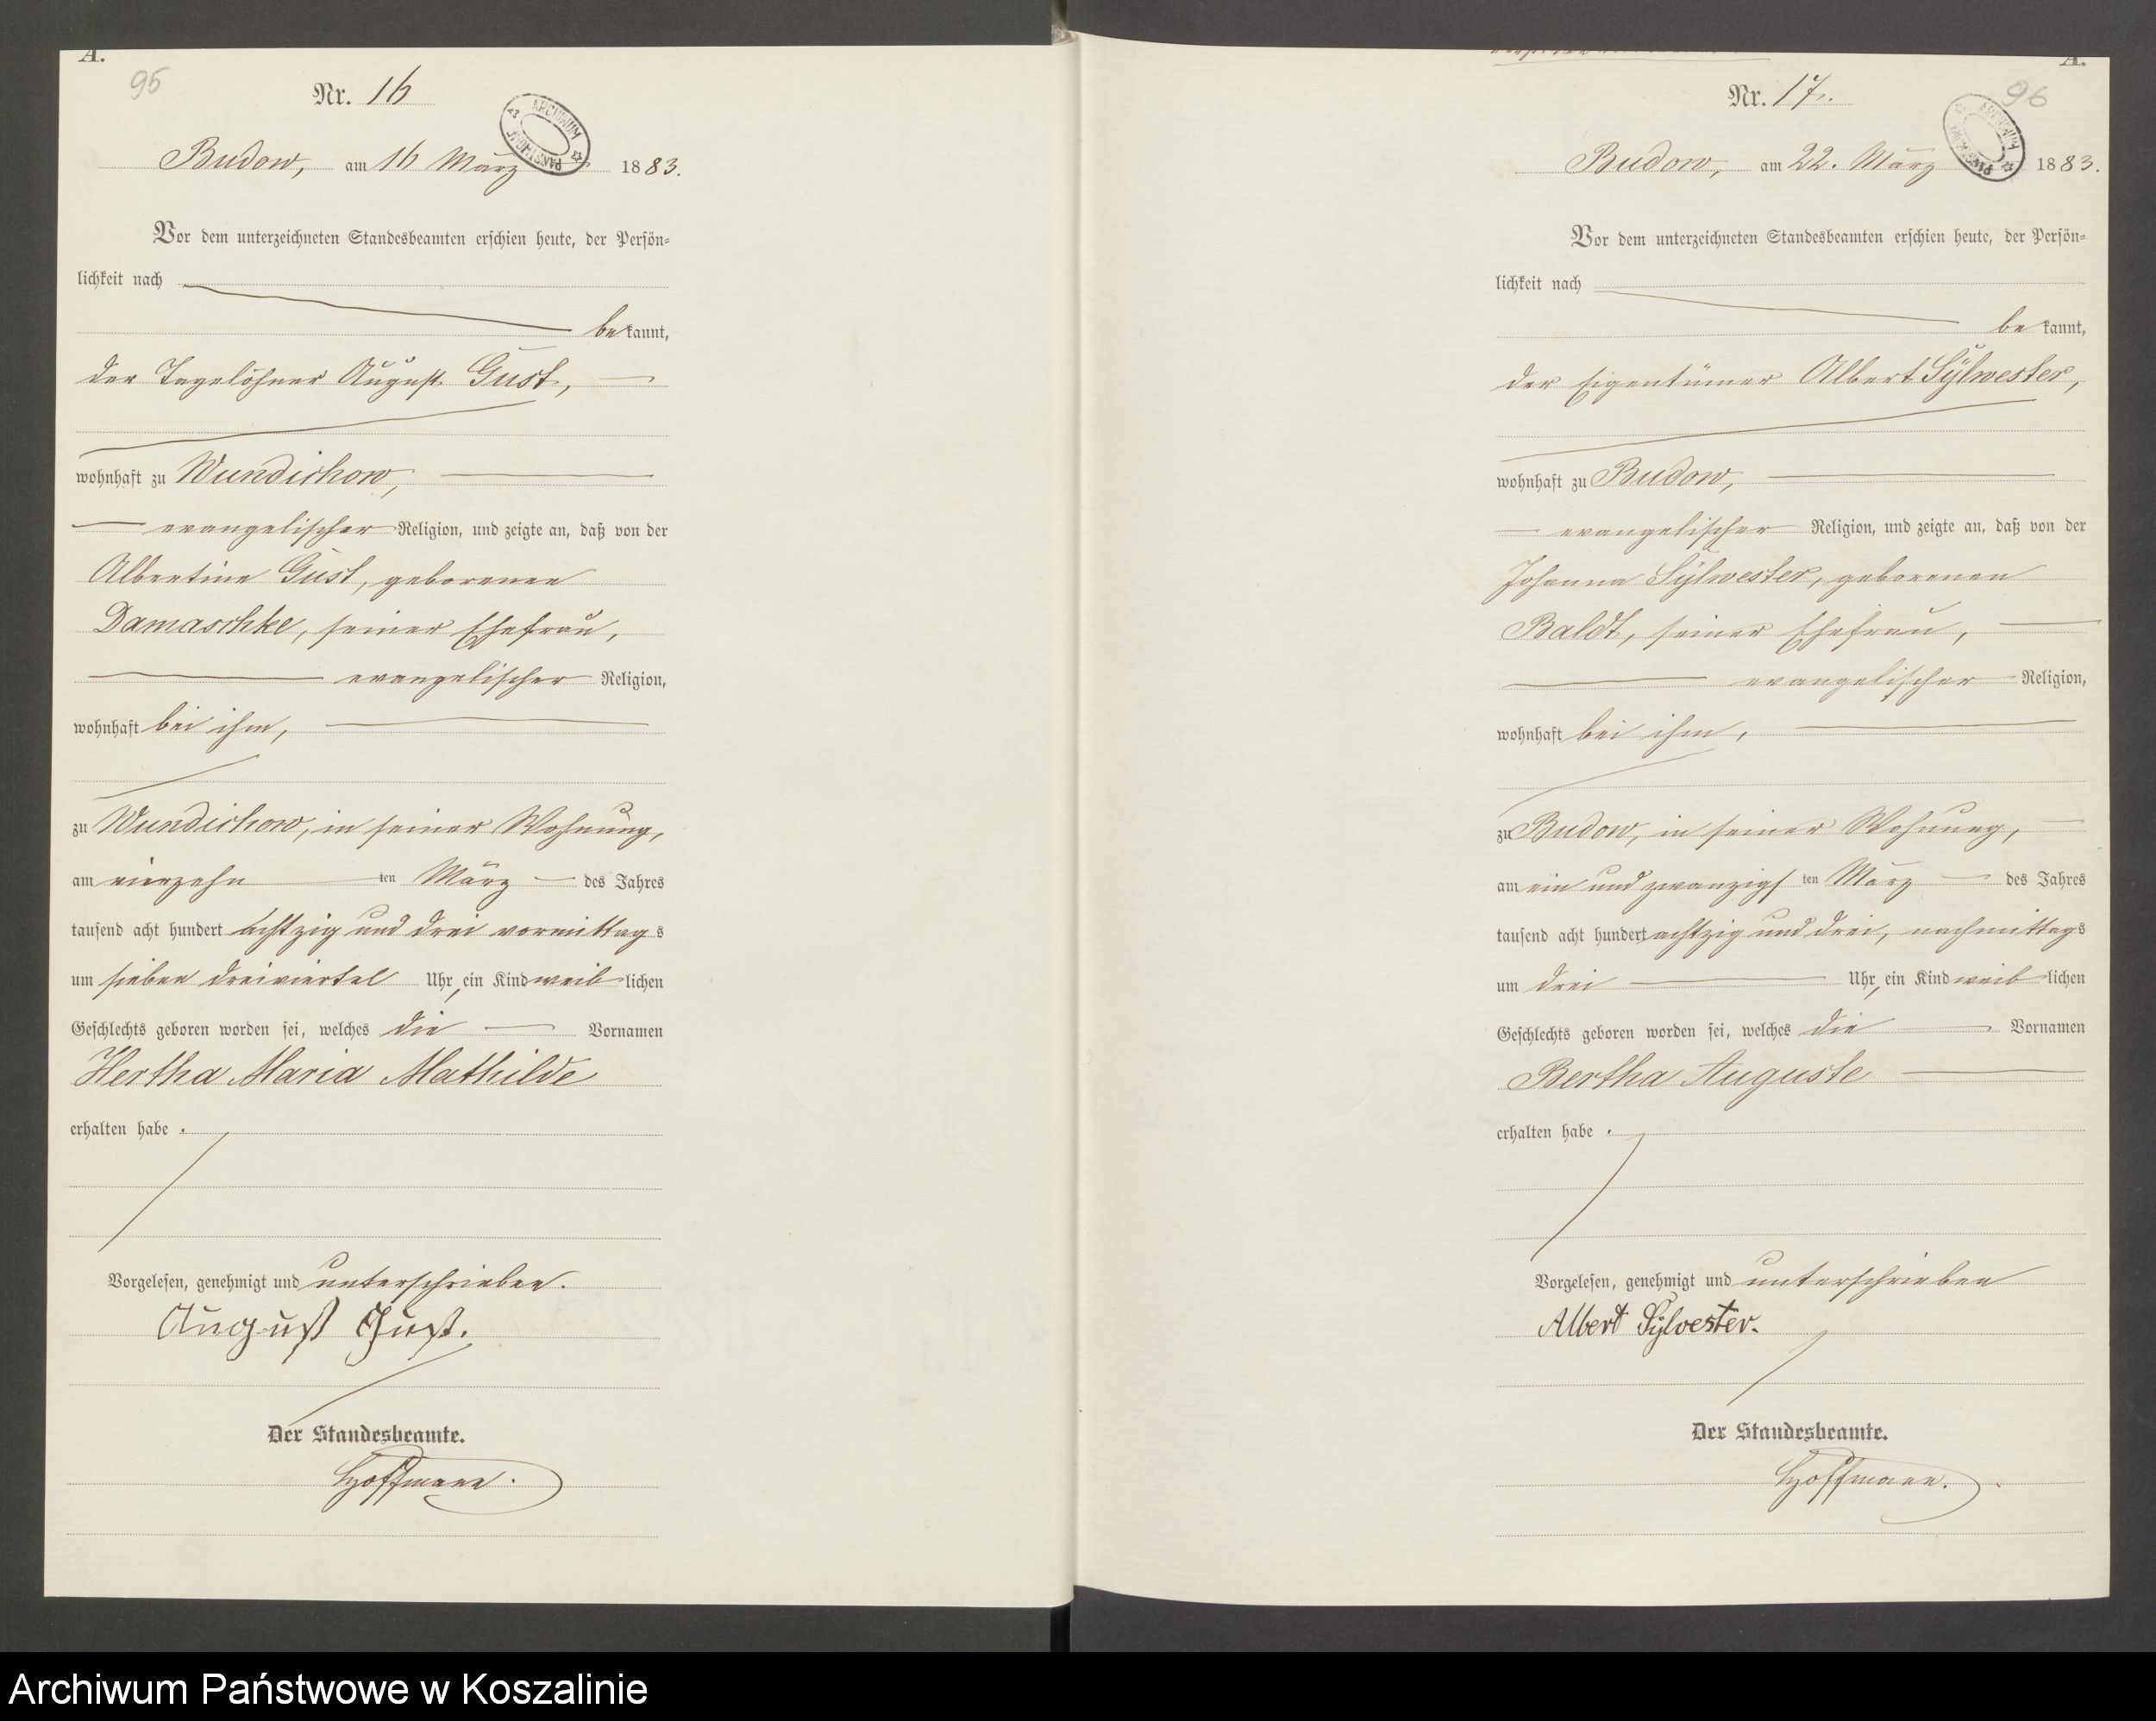 A.
95
Nr. 16
ARCHIWUM PAŃSTWOWE
Budow, am 16 März 1883.
Vor dem unterzeichneten Standesbeamten erschien heute, der Persön-
lichkeit nach
bekannt,
der Tagelöhner August Gust,
wohnhaft zu Wundichow,
evangelischer Religion, und zeigte an, daß von der
Albertine Gust, geborenen
Damaschke, seiner Ehefrau,
evangelischer Religion,
wohnhaft bei ihm,
zu Wundichow, in seiner Wohnung,
am vierzehn ten März des Jahres
tausend acht hundert achtzig und drei vormittags
um sieben dreiviertel Uhr, ein Kind weiblichen
Geschlechts geboren worden sei, welches die Vornamen
Hertha Maria Mathilde
erhalten habe.
Vorgelesen, genehmigt und unterschrieben.
August Gust.
Der Standesbeamte.
Hoffmann.
A.
96
Nr. 17.
Budow, am 22. März 1883.
Vor dem unterzeichneten Standesbeamten erschien heute, der Persön-
lichkeit nach
bekannt,
der Eigentümer Albert Sÿlwester,
wohnhaft zu Budow,
evangelischer Religion, und zeigte an, daß von der
Johanna Sÿlwester, geborenen
Baldt, seiner Ehefrau,
evangelischer Religion,
wohnhaft bei ihm,
zu Budow, in seiner Wohnung,
am ein und zwanzigsten März des Jahres
tausend acht hundert achtzig und drei, nachmittags
um drei Uhr, ein Kind weiblichen
Geschlechts geboren worden sei, welches die Vornamen
Bertha Auguste
erhalten habe.
Vorgelesen, genehmigt und unterschrieben
Albert Sÿlvester.
Der Standesbeamte.
Hoffmann.
Archiwum Państwowe w Koszalinie